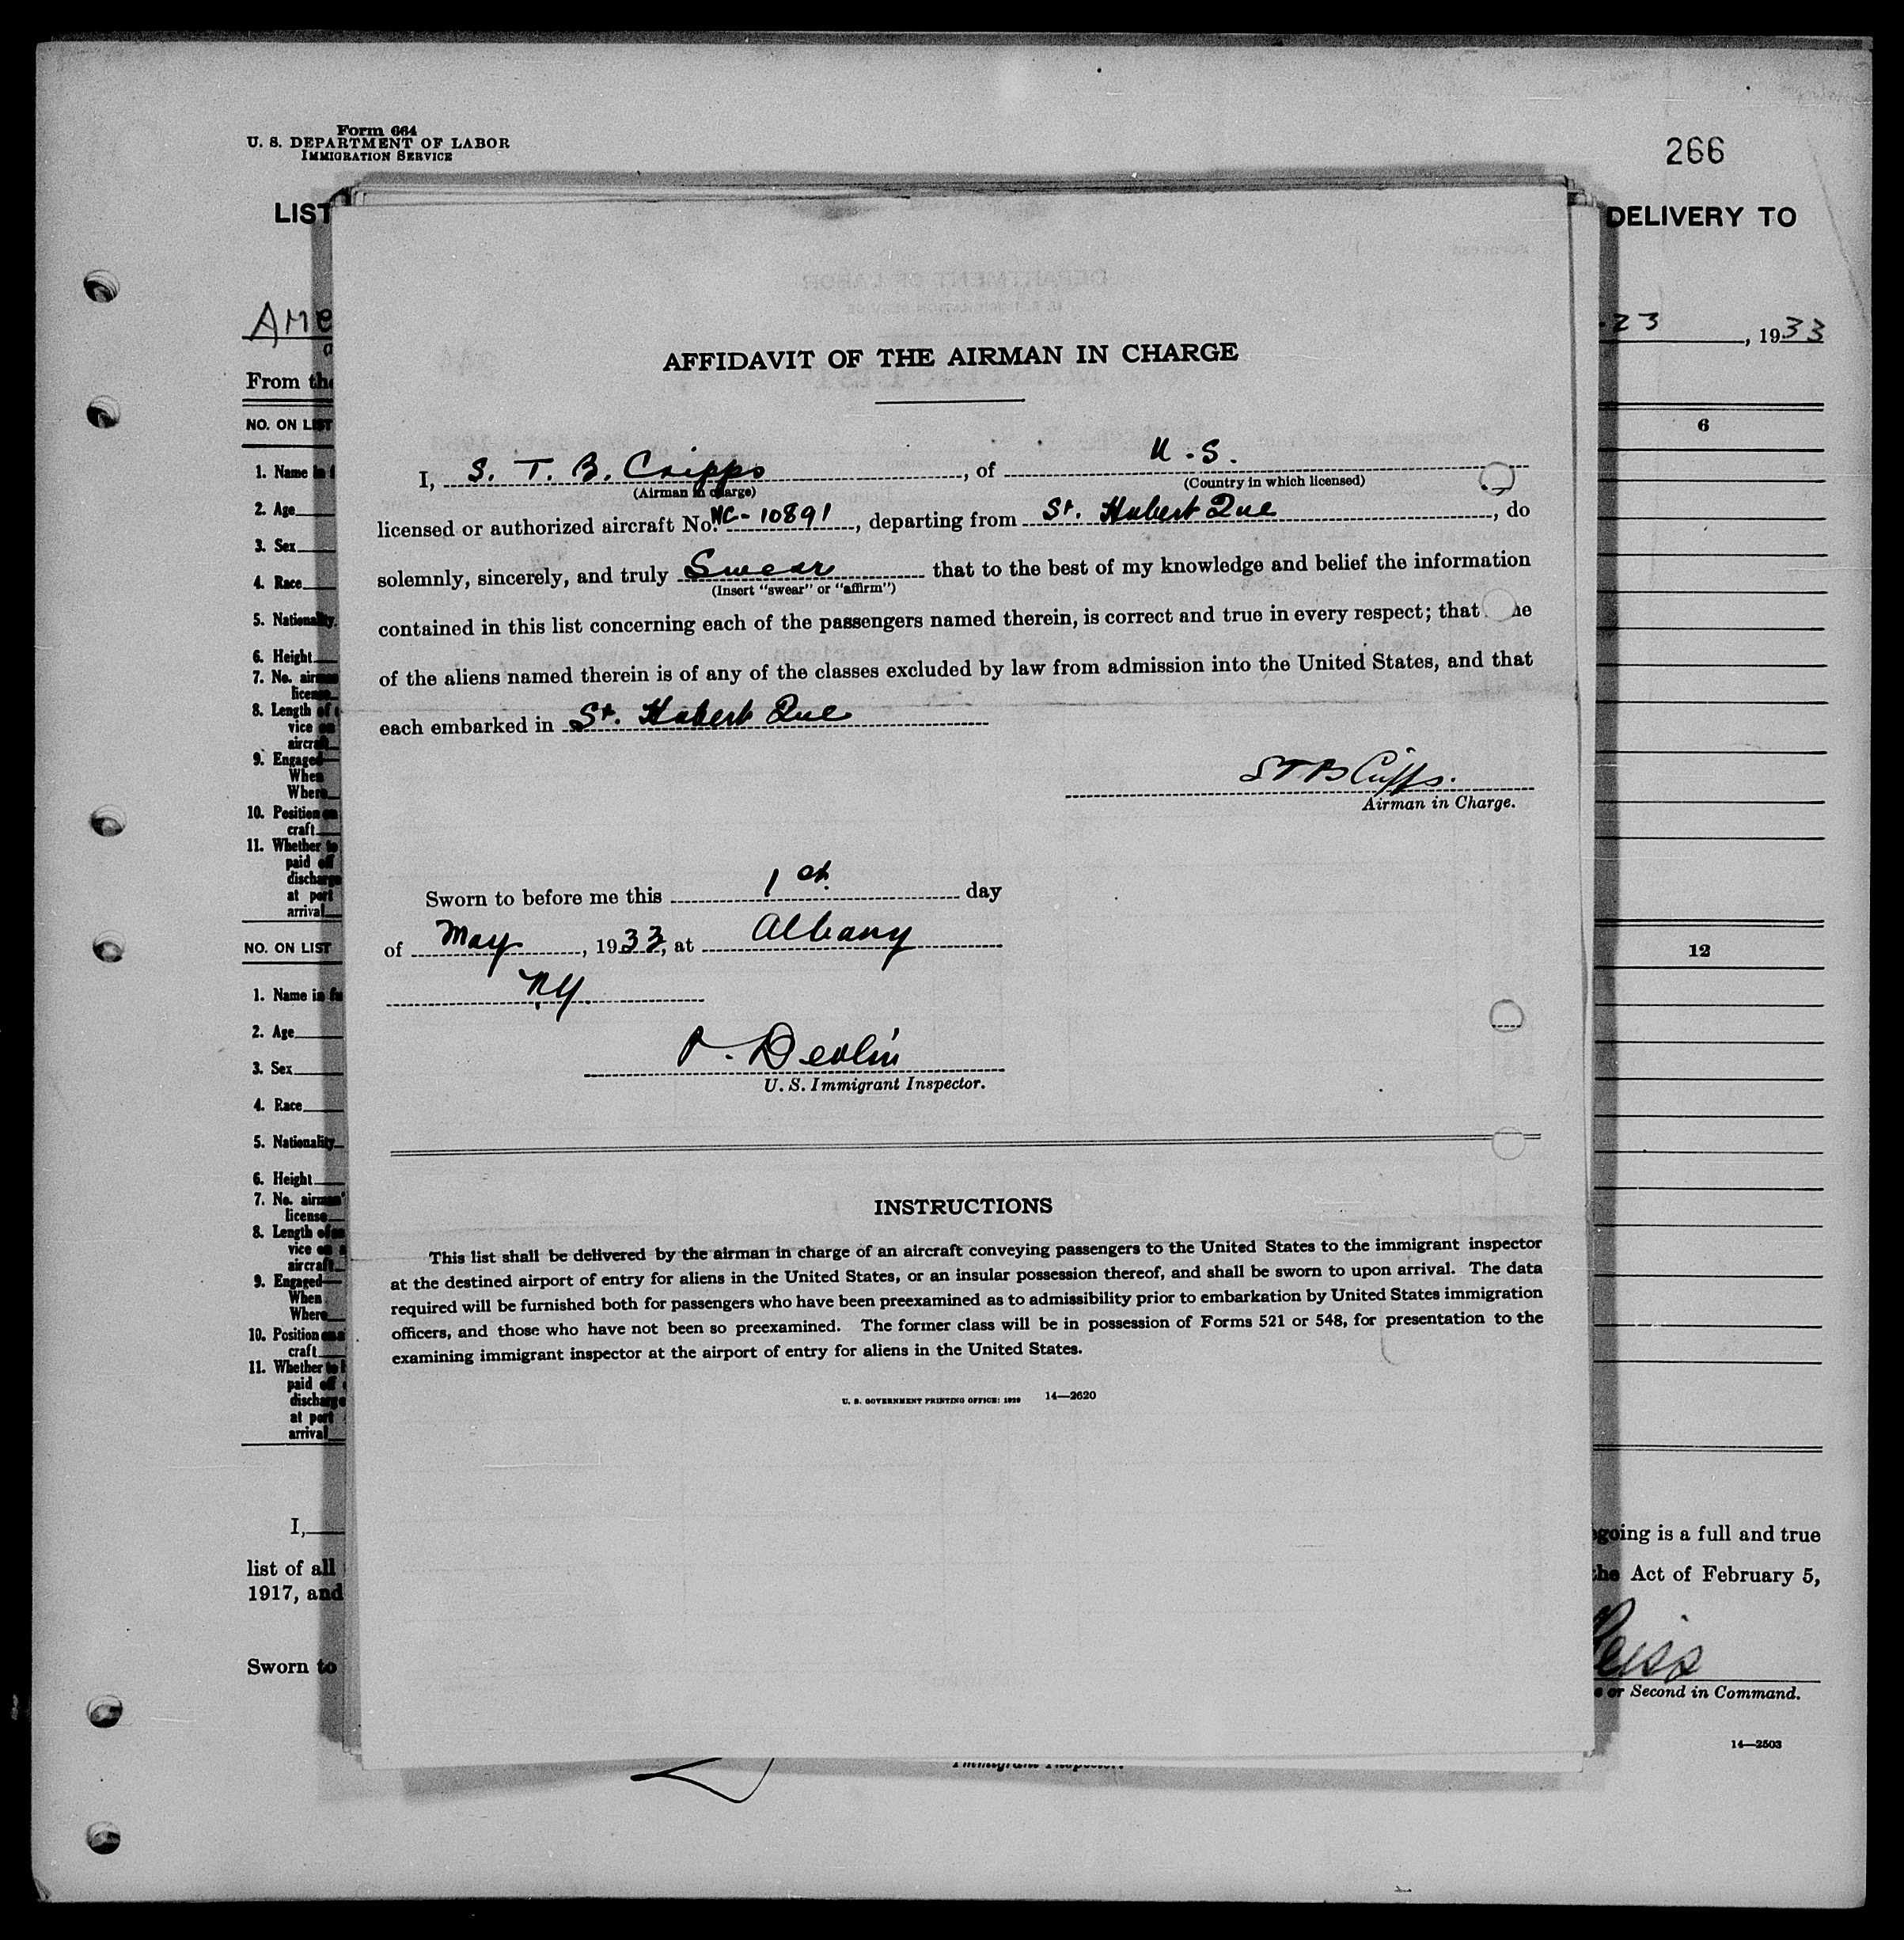 Form 664
U. S. DEPARTMENT OF LABOR
IMMIGRATION SERVICE
266
LIST
DELIVERY TO
AME
-23, 1933
From the
NO. ON LIST
6
1. Name in f
2. Age
3. Sex
4. Race
5. Nationality
6. Height
7. No. airman
license
8. Length of
vice on
aircraft
9. Engaged—
When
Where
10. Position on
craft
11. Whether to
paid off
discharge
at port
arrival
NO. ON LIST
12
1. Name in fu
2. Age
3. Sex
4. Race
5. Nationality
6. Height
7. No. airman'
license
8. Length of
vice on a
aircraft
9. Engaged—
When
Where
10. Position on
craft
11. Whether to
paid off
discharge
at port
arrival
I,
going is a full and true
list of all
the Act of February 5,
1917, and
eiss
Sworn to
or Second in Command.
14—2503
Immigrant Inspector.
AFFIDAVIT OF THE AIRMAN IN CHARGE
I, S. T. B. Cripps, of U.S.
(Airman in charge) (Country in which licensed)
licensed or authorized aircraft No. NC-10891, departing from St. Hubert Que, do
solemnly, sincerely, and truly Swear that to the best of my knowledge and belief the information
(Insert "swear" or "affirm")
contained in this list concerning each of the passengers named therein, is correct and true in every respect; that ne
of the aliens named therein is of any of the classes excluded by law from admission into the United States, and that
each embarked in St. Hubert Que
STB Cripps.
Airman in Charge.
Sworn to before me this 1st day
of May, 1933, at Albany
N.Y.
P. Devlin
U. S. Immigrant Inspector.
INSTRUCTIONS
This list shall be delivered by the airman in charge of an aircraft conveying passengers to the United States to the immigrant inspector
at the destined airport of entry for aliens in the United States, or an insular possession thereof, and shall be sworn to upon arrival. The data
required will be furnished both for passengers who have been preexamined as to admissibility prior to embarkation by United States immigration
officers, and those who have not been so preexamined. The former class will be in possession of Forms 521 or 548, for presentation to the
examining immigrant inspector at the airport of entry for aliens in the United States.
U. S. GOVERNMENT PRINTING OFFICE: 1929 14—2620